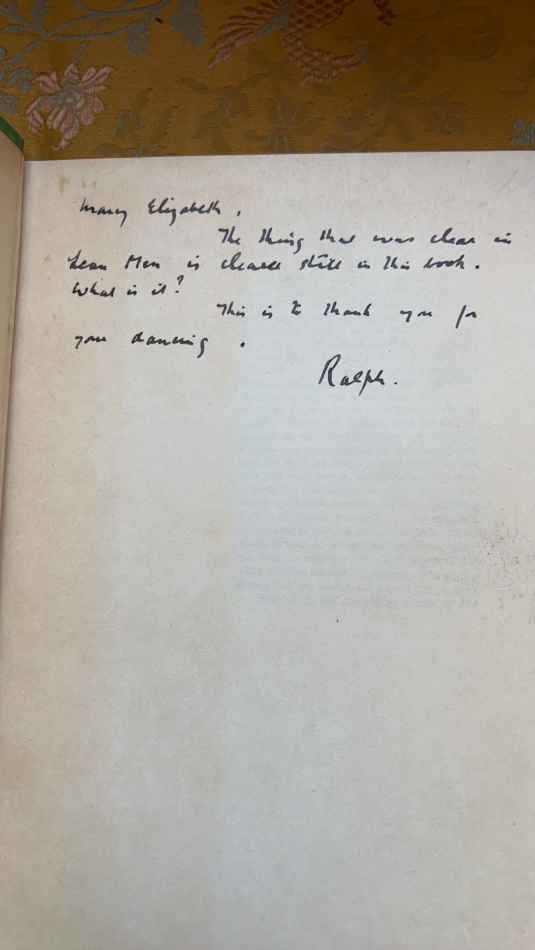 Mary Elizabeth,
The thing that was clear in
Lean Men is clearer still in this book.
What is it?
This is to thank you for
your dancing.
Ralph.